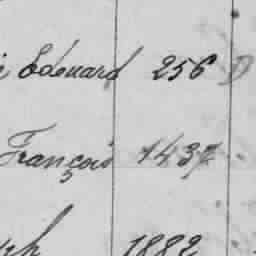 Edouard 256 D
François 1437
1882